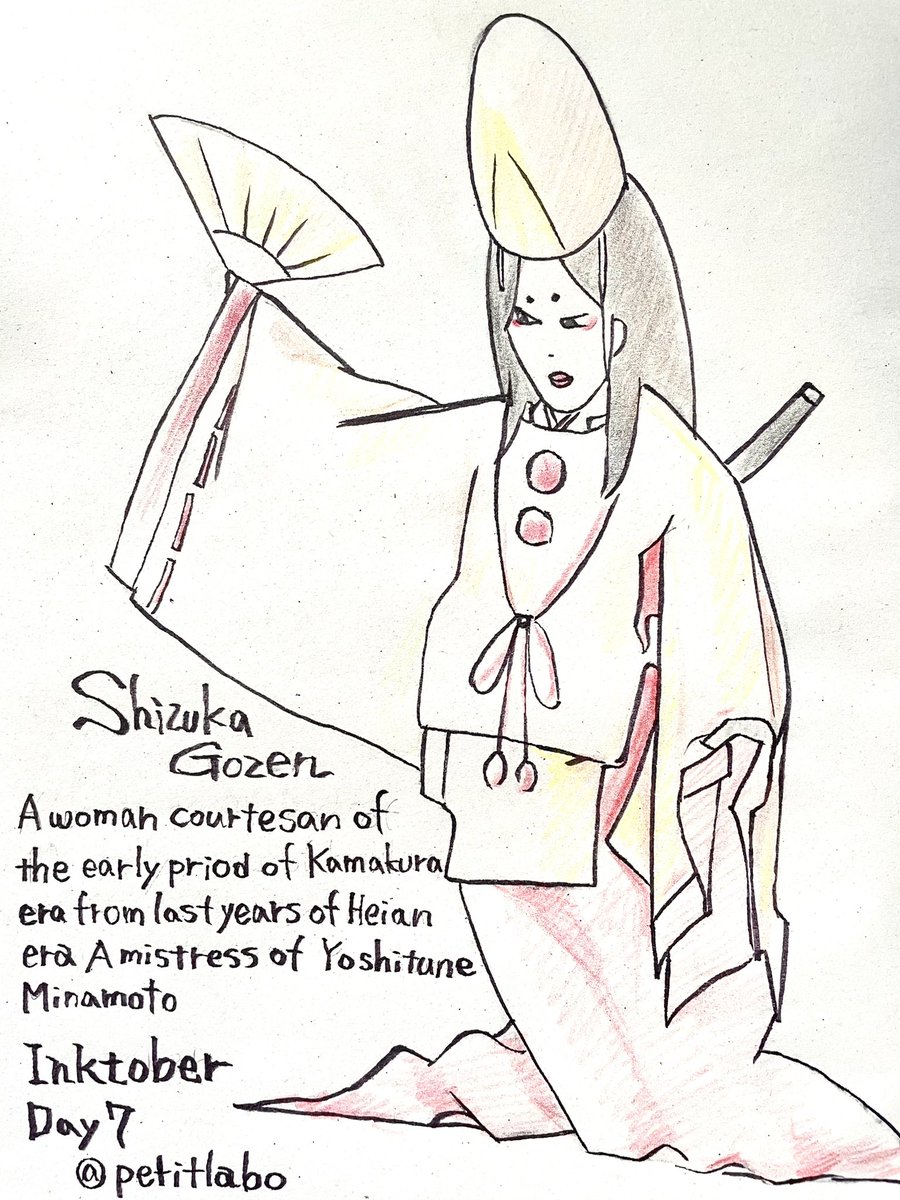 Shizuka
Gozen
A woman courtesan of
the early priod of Kamakura
era from last years of Heian
era A mistress of Yoshitune
Minamoto
Inktober
Day 7
@petitlabo